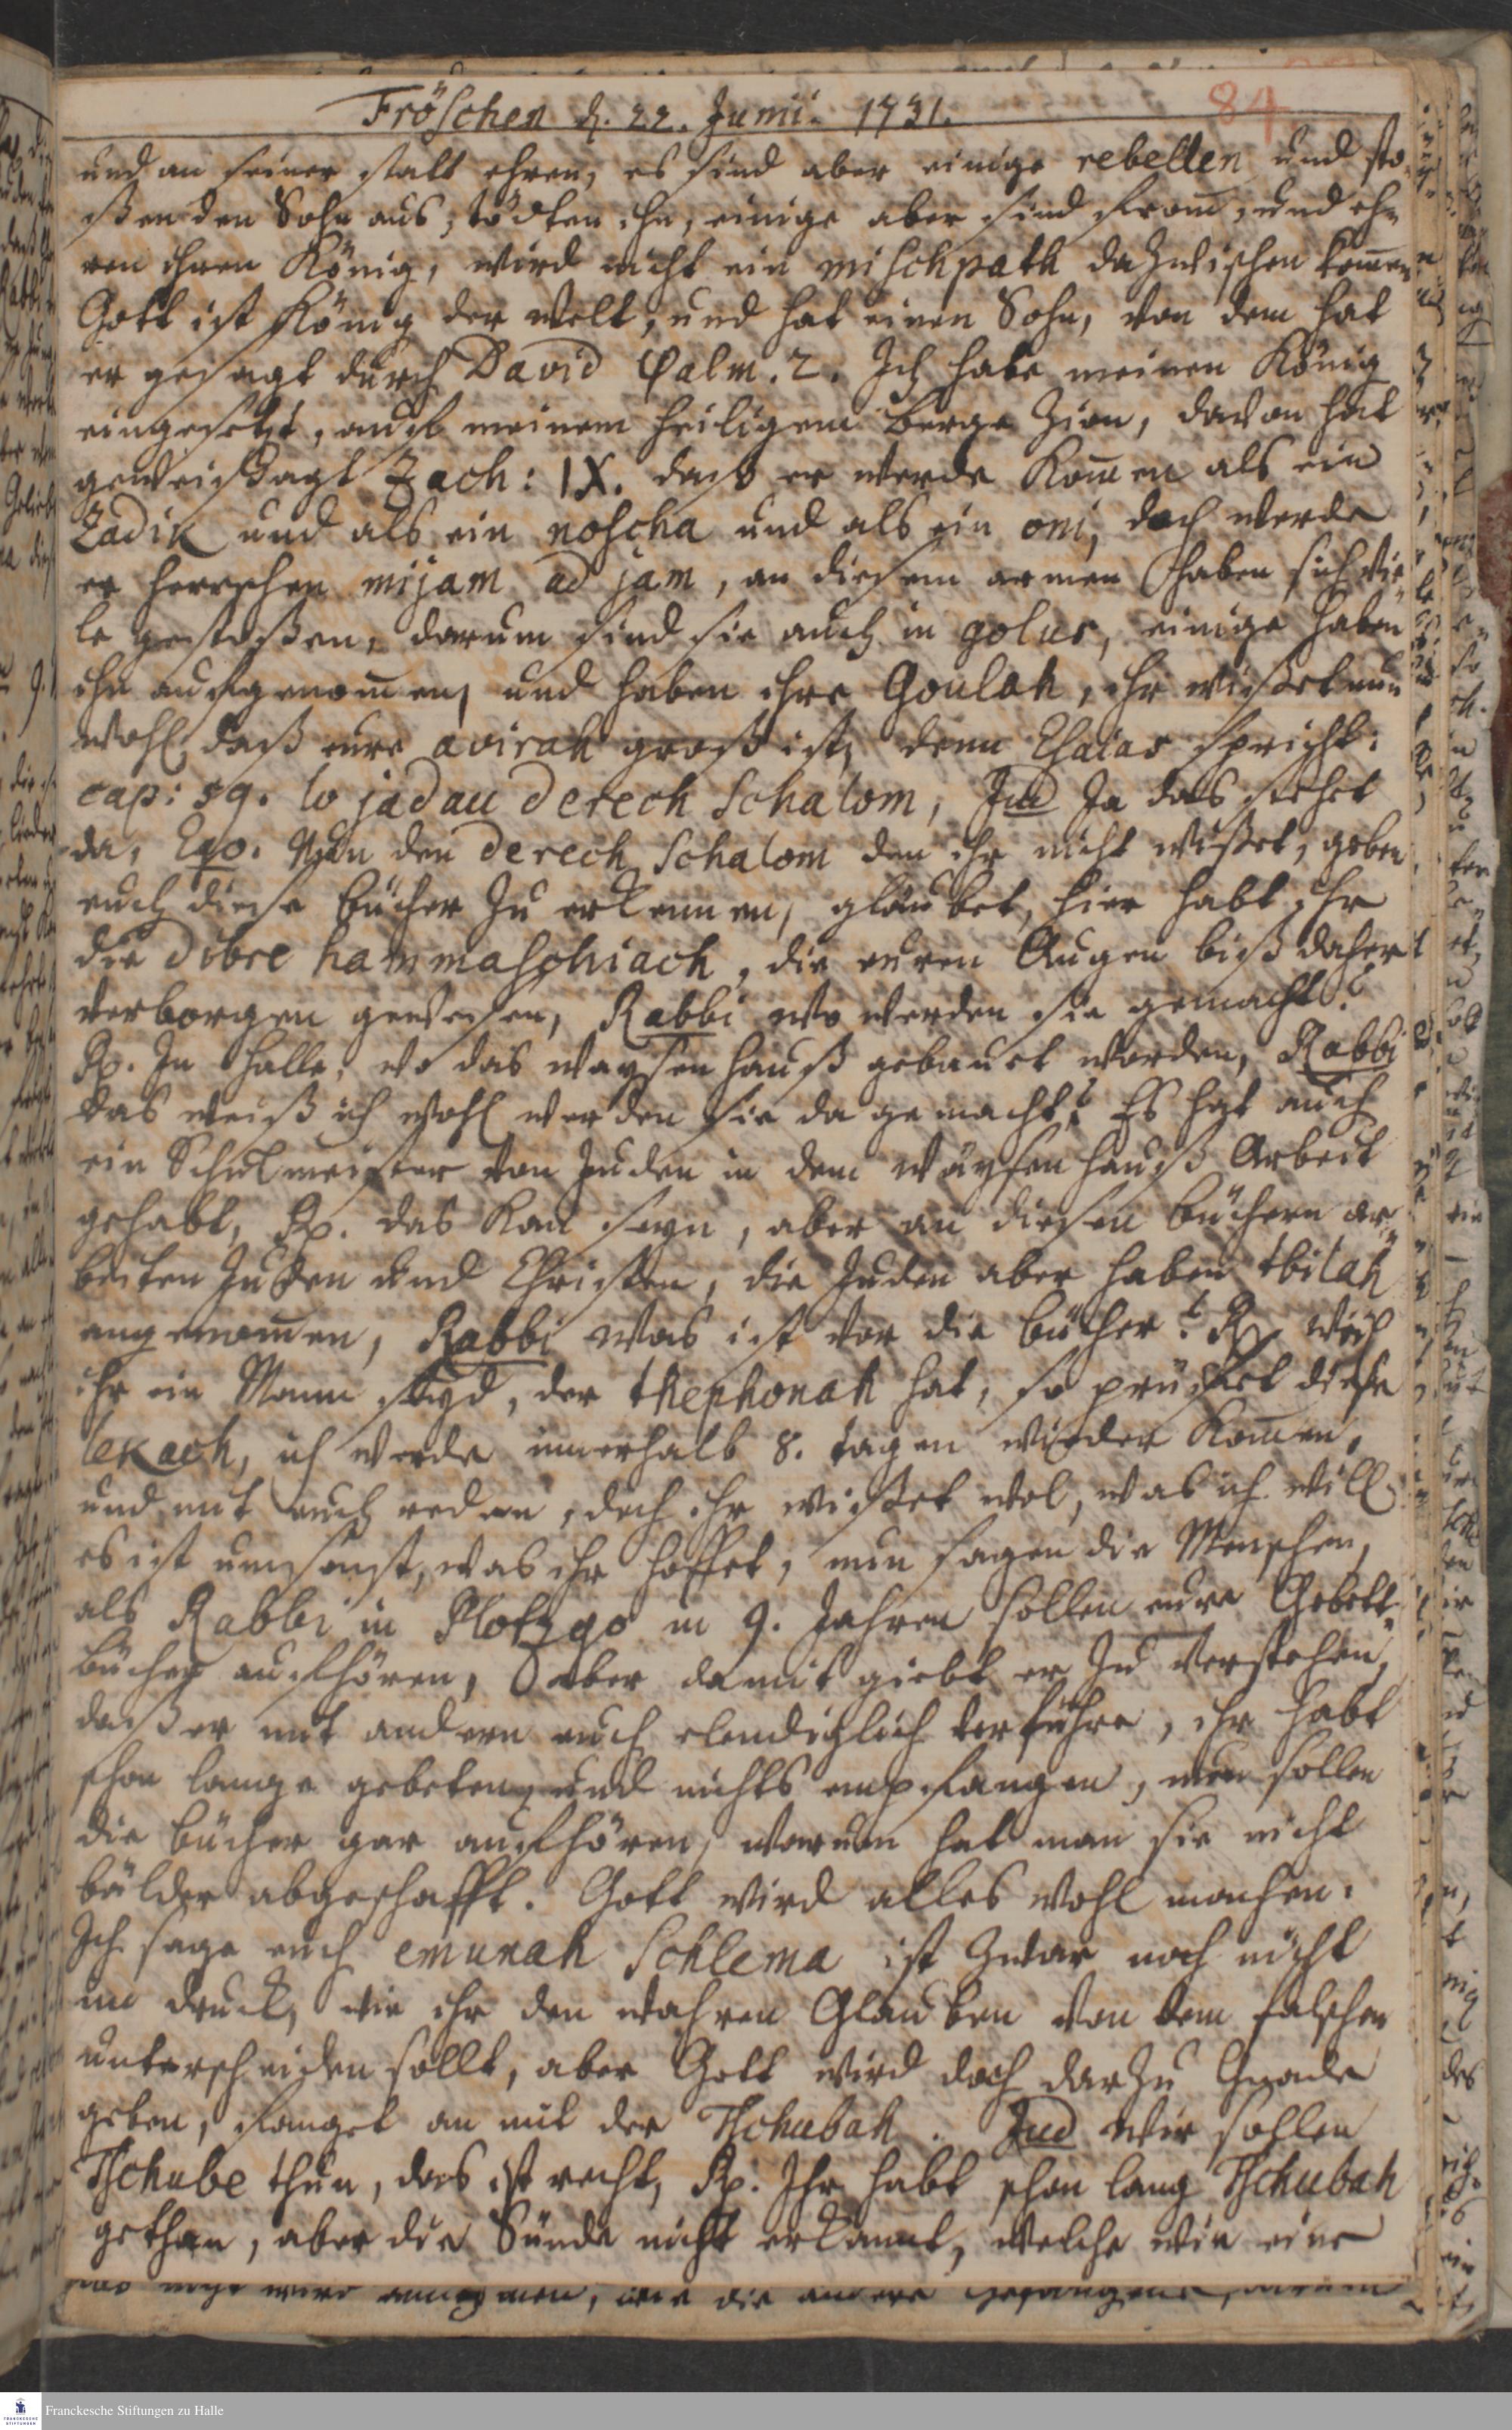 84
Fröschen d. 22. Junii. 1731.
und an seiner statt ehren, es sind aber einige rebellen und sto-
ßen den Sohn aus, tödten ihn, einige aber sind from, und eh-
ren ihren König, wird nicht ein mischpath dazwischen kommen
Gott ist König der Welt, und hat einen Sohn, von dem hat
er gesagt durch David Psalm. 2. Ich habe meinen König
eingesetzt, auf meinem heiligem berge Zion, davon hat
geweissagt Zach: IX. daß er werde kommen als ein
Zadik und als ein noscha und als ein oni, doch werde
er herrschen mijam ad jam, an diesem armen haben sich vie-
le gestoßen, darum sind sie auch in golus, einige haben
ihn aufgenommen, und haben ihre Goulah, ihr wisset nun
wohl, daß eure avirah groß ist, denn Esaias spricht:
cap: 59. lo jadau derech schalom, Jud Ja das stehet
da, Ego. Nun den derech schalom den ihr nicht wisset, geben
euch diese bücher zu erkennen, glaubet, hier habt ihr
die dibre hammaschiach, die euren Augen biß daher
verborgen gewesen, Rabbi wo werden sie gemacht?
Rp. In Halle, wo das waysenhauß gebauet worden, Rabbi
das weiß ich wohl werden sie da gemacht? Es hat auch
ein Schulmeister von Juden in dem waysenhauß Arbeit
gehabt, Rp. das kan seyn, aber an diesen büchern ar-
beiten Juden und Christen, die Juden aber haben tbilah
angenommen, Rabbi was ist vor die bücher? Rp. Weil
ihr ein Mann seyd, der thephonah hat, so prüfet diese
lekach, ich werde innerhalb 8. tagen wieder kommen,
und mit euch reden, doch ihr wisset wol, was ich will
es ist umsonst, was ihr hoffet, nun sagen die Menschen,
als Rabbi in Plotzgo in 9. Jahren sollen eure Gebett-
bücher aufhören, aber damit giebt er zu verstehen,
daß er mit andern euch elendiglich verführe, ihr habt
schon lange gebeten, und nichts empfangen, nun sollen
die bücher gar aufhören, warum hat man sie nicht
bälder abgeschafft. Gott wird alles wohl machen.
Ich sage euch emunah schlema ist zwar noch nicht
im druck, wie ihr den wahren Glauben von dem falschen
unterscheiden sollt, aber Gott wird doch darzu Gnade
geben, fanget an mit der Tschubah. Jud wir sollen
Tschube thun, das ist recht, Rp. Ihr habt schon lang Tschubah
gethan, aber die Sünde nicht erkannt, welche wie eine
Franckesche Stiftungen zu Halle